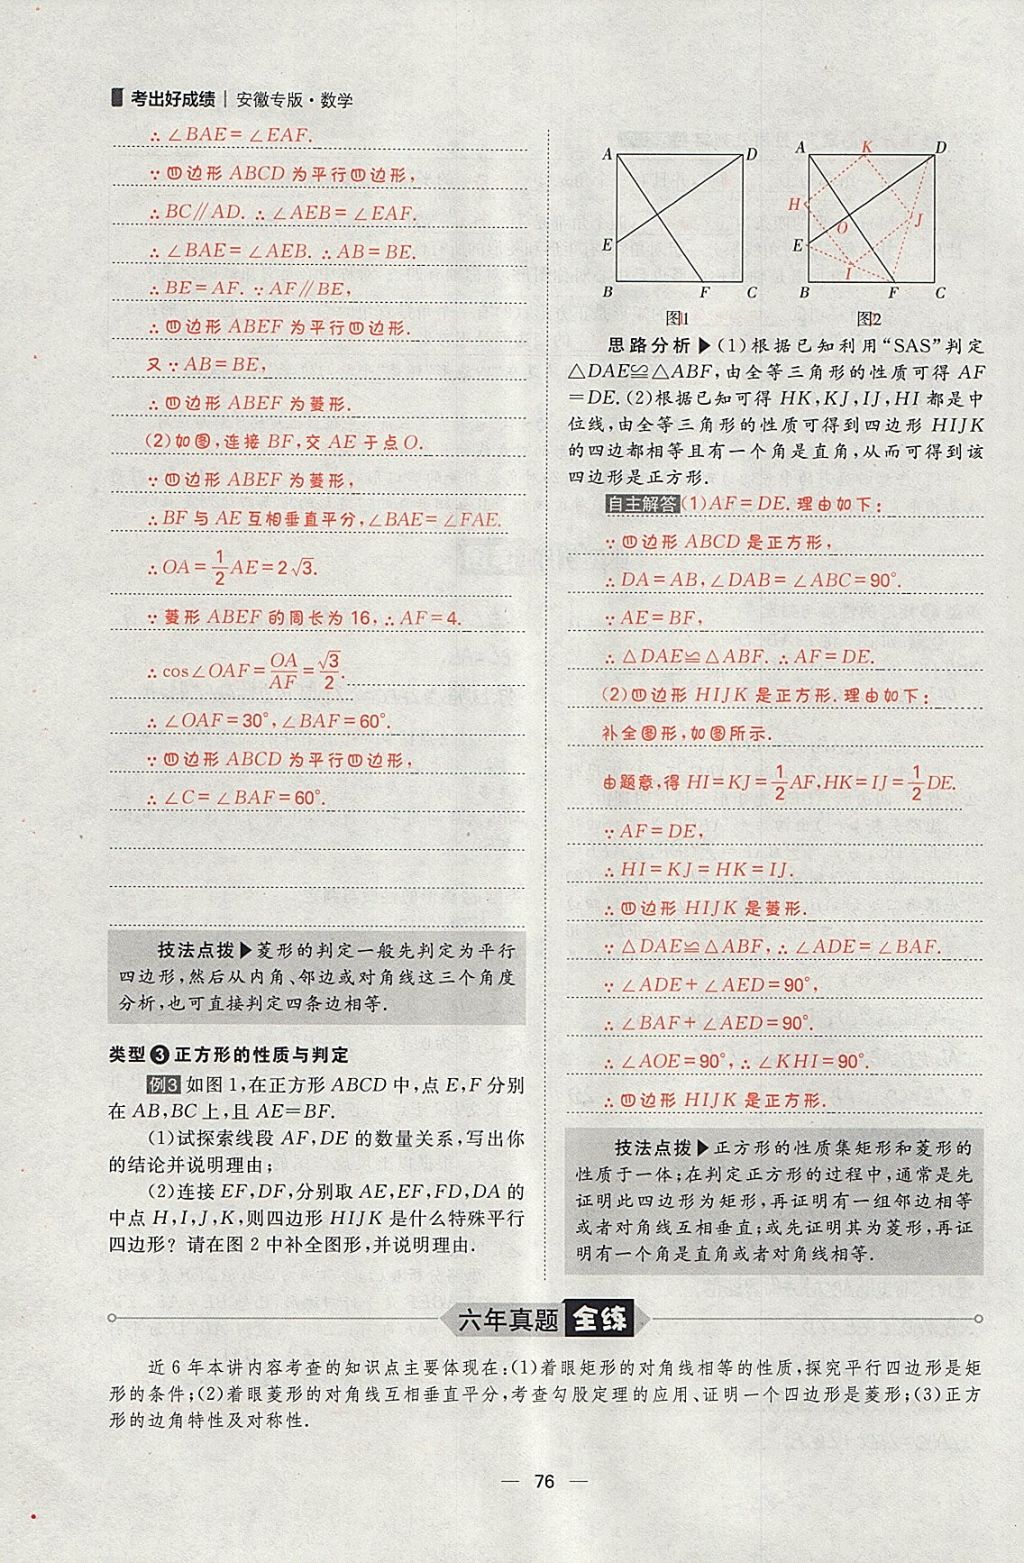 考出好成绩 | 安徽专版·数学
∴∠BAE=∠EAF.
∵四边形 ABCD 为平行四边形,
∴BC∥AD. ∴∠AEB=∠EAF.
∴∠BAE=∠AEB. ∴AB=BE.
∴BE=AF. ∵AF∥BE,
∴四边形 ABEF 为平行四边形.
又∵AB=BE,
∴四边形 ABEF 为菱形.
(2)如图,连接 BF,交 AE 于点O.
∵四边形 ABEF 为菱形,
∴BF 与 AE 互相垂直平分,∠BAE=∠FAE.
∴OA=1/2AE=2√3.
∵菱形 ABEF 的周长为 16,∴AF=4.
∴cos∠OAF=OA/AF=√3/2.
∴∠OAF=30°,∠BAF=60°.
∵四边形 ABCD 为平行四边形,
∴∠C=∠BAF=60°.
技法点拨▶菱形的判定一般先判定为平行
四边形,然后从内角、邻边或对角线这三个角度
分析,也可直接判定四条边相等.
类型❸正方形的性质与判定
例3 如图 1,在正方形 ABCD 中,点 E,F 分别
在 AB,BC 上,且 AE=BF.
(1)试探索线段 AF,DE 的数量关系,写出你
的结论并说明理由;
(2)连接 EF,DF,分别取 AE,EF,FD,DA 的
中点 H,I,J,K,则四边形 HIJK 是什么特殊平行
四边形? 请在图 2 中补全图形,并说明理由.
A D E B F C
图1
A K D H J O E I B F C
图2
思路分析▶(1)根据已知利用“SAS”判定
△DAE≌△ABF,由全等三角形的性质可得 AF
=DE.(2)根据已知可得 HK,KJ,IJ,HI 都是中
位线,由全等三角形的性质可得到四边形 HIJK
的四边都相等且有一个角是直角,从而可得到该
四边形是正方形.
自主解答 (1)AF=DE.理由如下:
∵四边形 ABCD 是正方形,
∴DA=AB,∠DAB=∠ABC=90°.
∵AE=BF,
∴△DAE≌△ABF. ∴AF=DE.
(2)四边形 HIJK 是正方形.理由如下:
补全图形,如图所示.
由题意,得 HI=KJ=1/2AF,HK=IJ=1/2DE.
∵AF=DE,
∴HI=KJ=HK=IJ.
∴四边形 HIJK 是菱形.
∵△DAE≌△ABF,∴∠ADE=∠BAF.
∵∠ADE+∠AED=90°,
∴∠BAF+∠AED=90°.
∴∠AOE=90°,∴∠KHI=90°.
∴四边形 HIJK 是正方形.
技法点拨▶正方形的性质集矩形和菱形的
性质于一体;在判定正方形的过程中,通常是先
证明此四边形为矩形,再证明有一组邻边相等
或者对角线互相垂直;或先证明其为菱形,再证
明有一个角是直角或者对角线相等.
六年真题 全练
近 6 年本讲内容考查的知识点主要体现在:(1)着眼矩形的对角线相等的性质,探究平行四边形是矩
形的条件;(2)着眼菱形的对角线互相垂直平分,考查勾股定理的应用、证明一个四边形是菱形;(3)正方
形的边角特性及对称性.
— 76 —